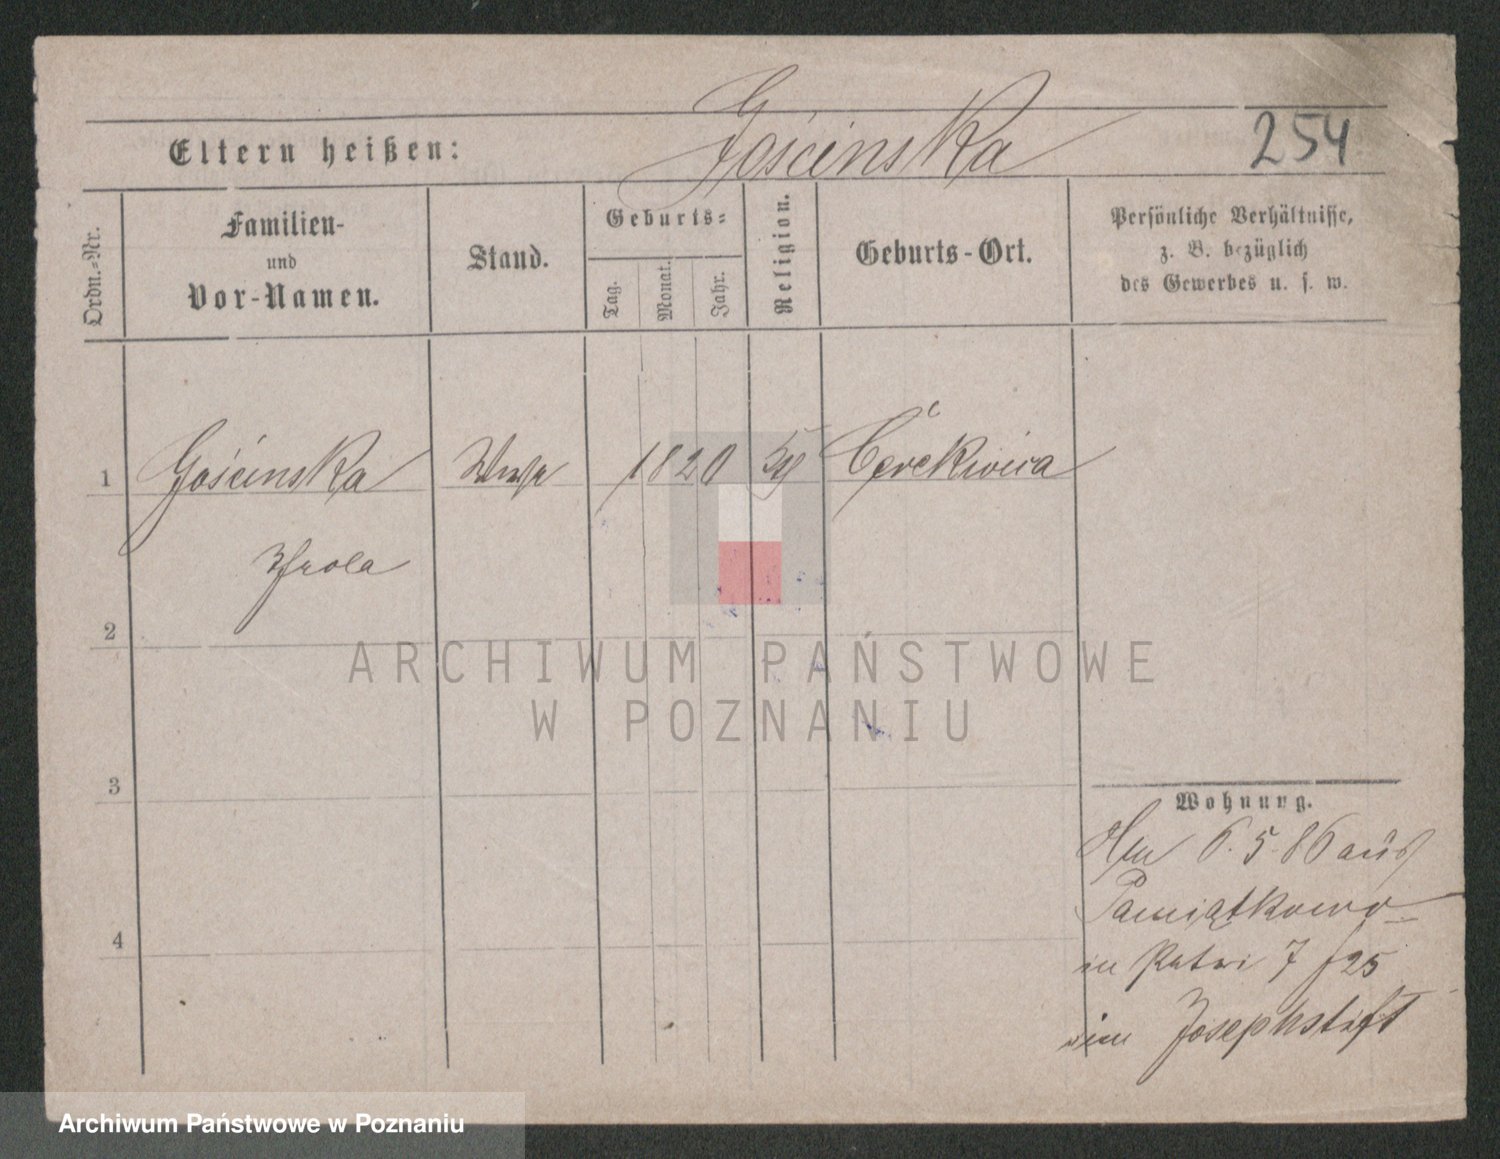 Gościnska
254
Eltern heißen:
Ordn.-Nr.
Familien-
und
Vor-Namen.
Stand.
Geburts-
Tag.
Monat.
Jahr.
Religion.
Geburts-Ort.
Persönliche Verhältnisse,
z. B. bezüglich
des Gewerbes u. s. w.
1 Gościnska 1820 Cerekwica
2
3
4
ARCHIWUM PAŃSTWOWE
W POZNANIU
Wohnung.
6.5.86 aus
Pamiątkowo
in Petri 7
im Josephstift
Archiwum Państwowe w Poznaniu